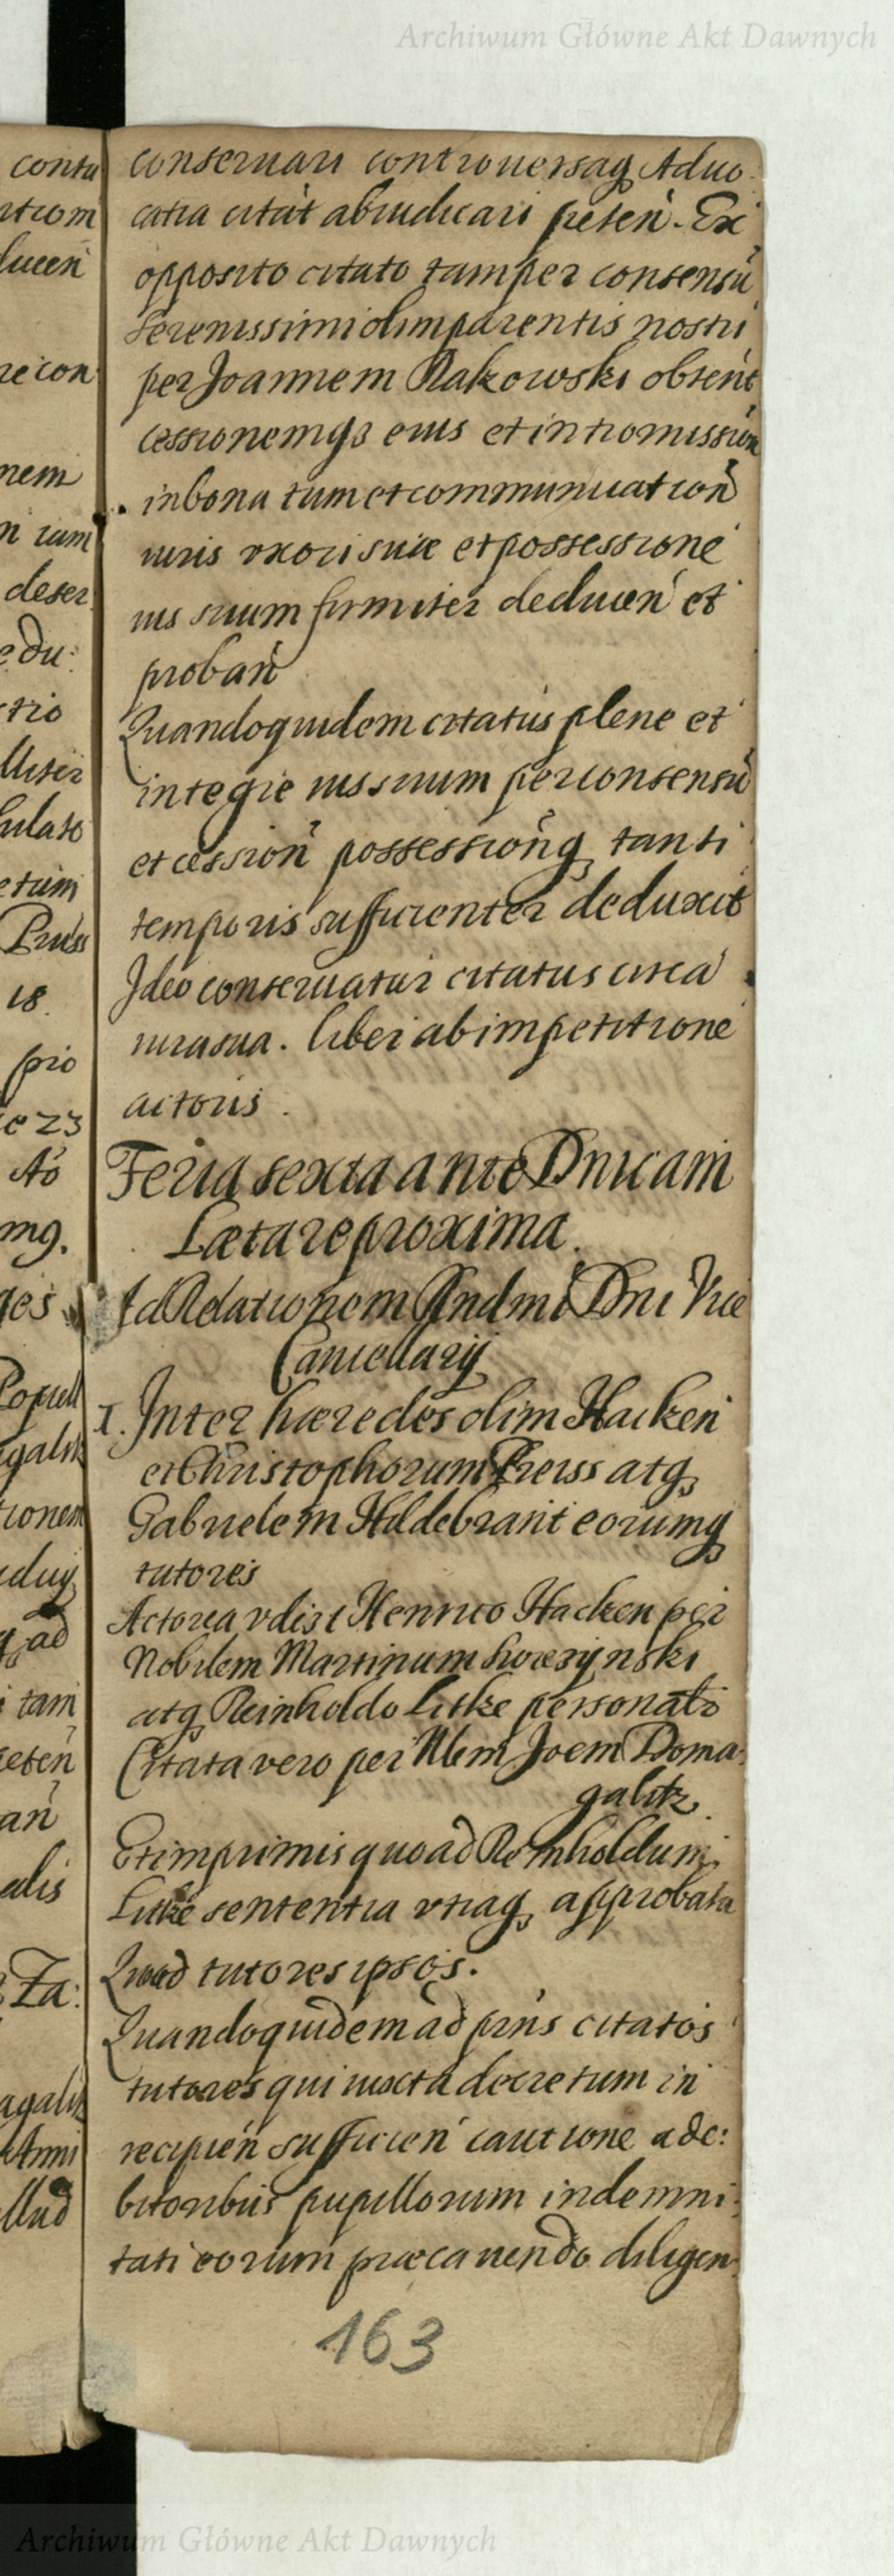 Archiwum Główne Akt Dawnych
conseruari controuersaq Aduo:
catia citát abiudicari peten. Ex
opposito citato tam per consensū
Serenissimi olim parentis nostri
per Joannem Rakowski obtent
cessionemq3 eius et intromission
in bona tum et communication
iuris vxori suæ et possessione
ius suum firmiter deducen et
proban
Quandoquidem citatus plene et
integre ius suum per consensū
et cession possessionq tanti
temporis sufficienter deduxit
Ideo conseruatur citatus circa
iura sua. liber ab impetitione
actoris.
Feria sexta ante Dnicam
Lætare proxima.
Ad Relationem Rndmi Dni Vice
Cancellarij
I. Inter hæredes olim Hacken
et Christophorum Preiss atq
Gabrielem Hildebrant eorumq
tutores
Actorea vdist Henrico Hacken per
Nobilem Martinum
atq Reinholdo Litke personalr
Citata vero per Nblem Joem Doma:
galitz.
Et imprimis quoad Reinholdum
Litke sententia vtraq approbata
Quoad tutores ipsos.
Quandoquidem ad prns citatos
tutores qui iuxta decretum in
recipien sufficien cautione a de:
bitoribus pupillorum indemni:
tati eorum præcauendo diligen
163
contu
ducen
re con
nem
iam
deser
e du:
ctio
etum
Pruss
18.
pro
e 23
Ao
mq.
ges
galitz
tionem
ad
tam
peten
an
alis
Za:
agalitz
Anni
illud
Archiwum Główne Akt Dawnych